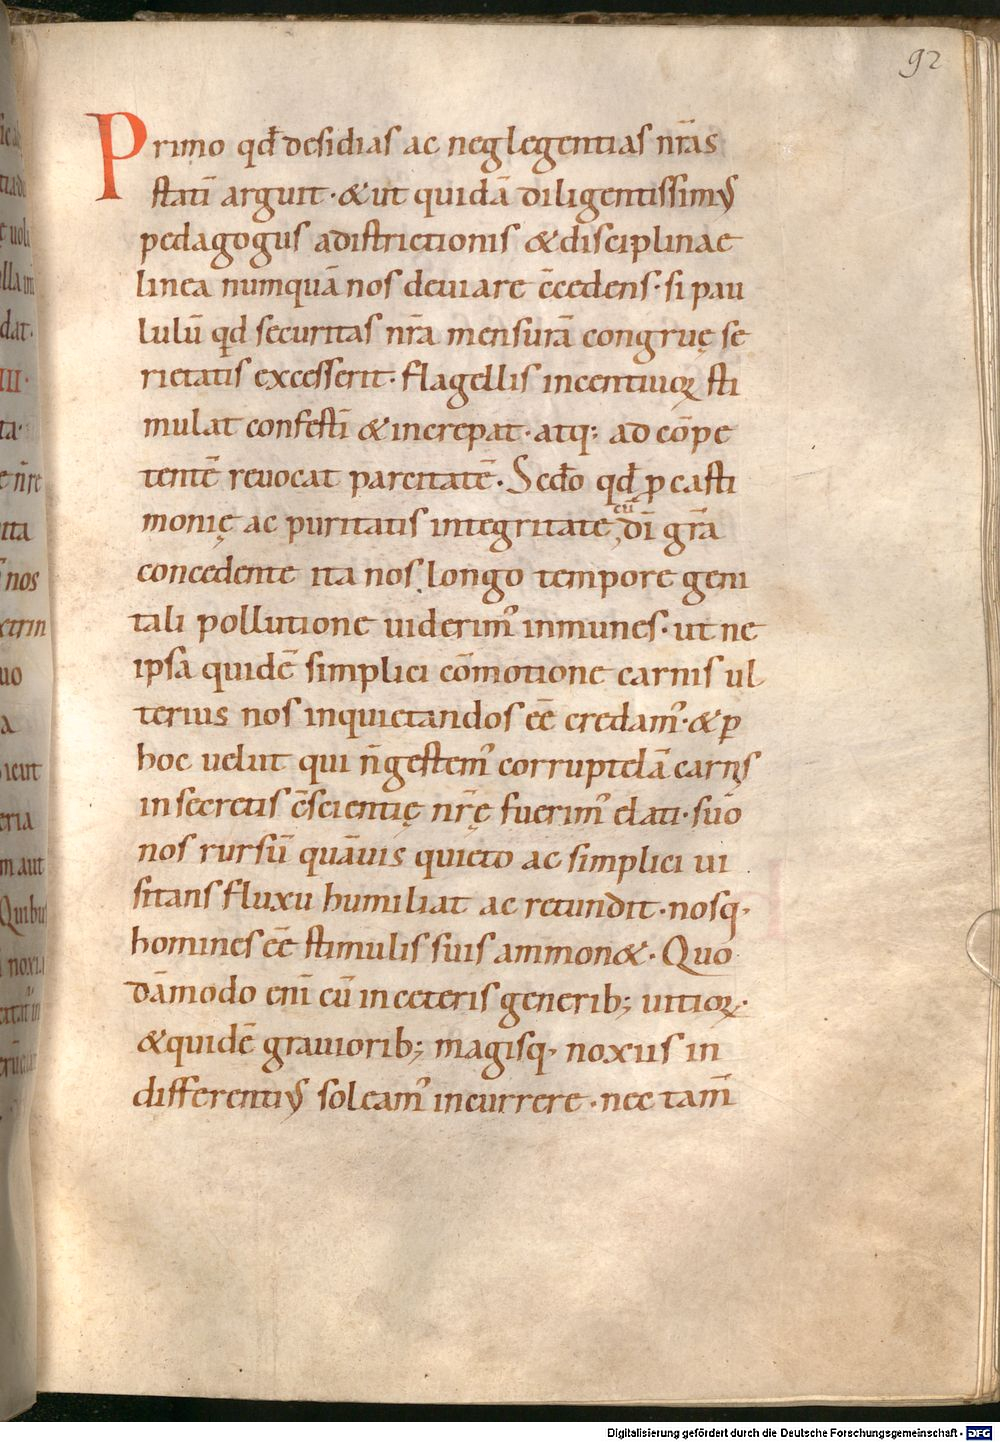 92
Primo qđ desidias ac neglegentias nr̄as
statī arguit · & ut quidā diligentissimꝰ
pedagogus adistrictionis & disciplinae
linea numquā nos deuiare c̄cedens · si pau
lulū qđ securitas nr̄a mensurā congruę se
rietatis excesserit · flagellis incentiuoꝝ sti
mulat confestī & increpat · atq: ad cōpe
tentē reuocat parcitatē · Scđo qđ ꝑ casti
monię ac puritatis integritatē, cū dī gr̄a
concedente ita nos longo tempore geni
tali pollutione uiderimꝰ inmunes · ut ne
ipsa quidē simplici cōmotione carnis ul
terius nos inquietandos eē credamꝰ · & ꝑ
hoc uelut qui n̄ gestemꝰ corruptelā carnis
in secretis c̄scientię nr̄ę fuerimꝰ elati · suo
nos rursū quāuis quieto ac simplici ui
sitans fluxu humiliat ac retundit · nosq·
homines eē stimulis suis ammon& · Quo
dāmodo enī cū in ceteris generib; uitioꝝ·
& quidē grauiorib; magisq· noxiis in
differentiꝰ soleamꝰ incurrere · nec tam̄
Digitalisierung gefördert durch die Deutsche Forschungsgemeinschaft - DFG